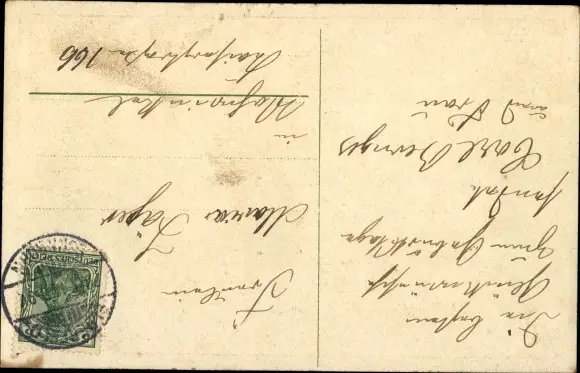 Die besten
Glückwünsche
zum Geburtstage
sendet
Carl Berniges
und Frau
Fräulein
Maria Jäger
in
Kaiserstraße 166
DEUTSCHES REICH